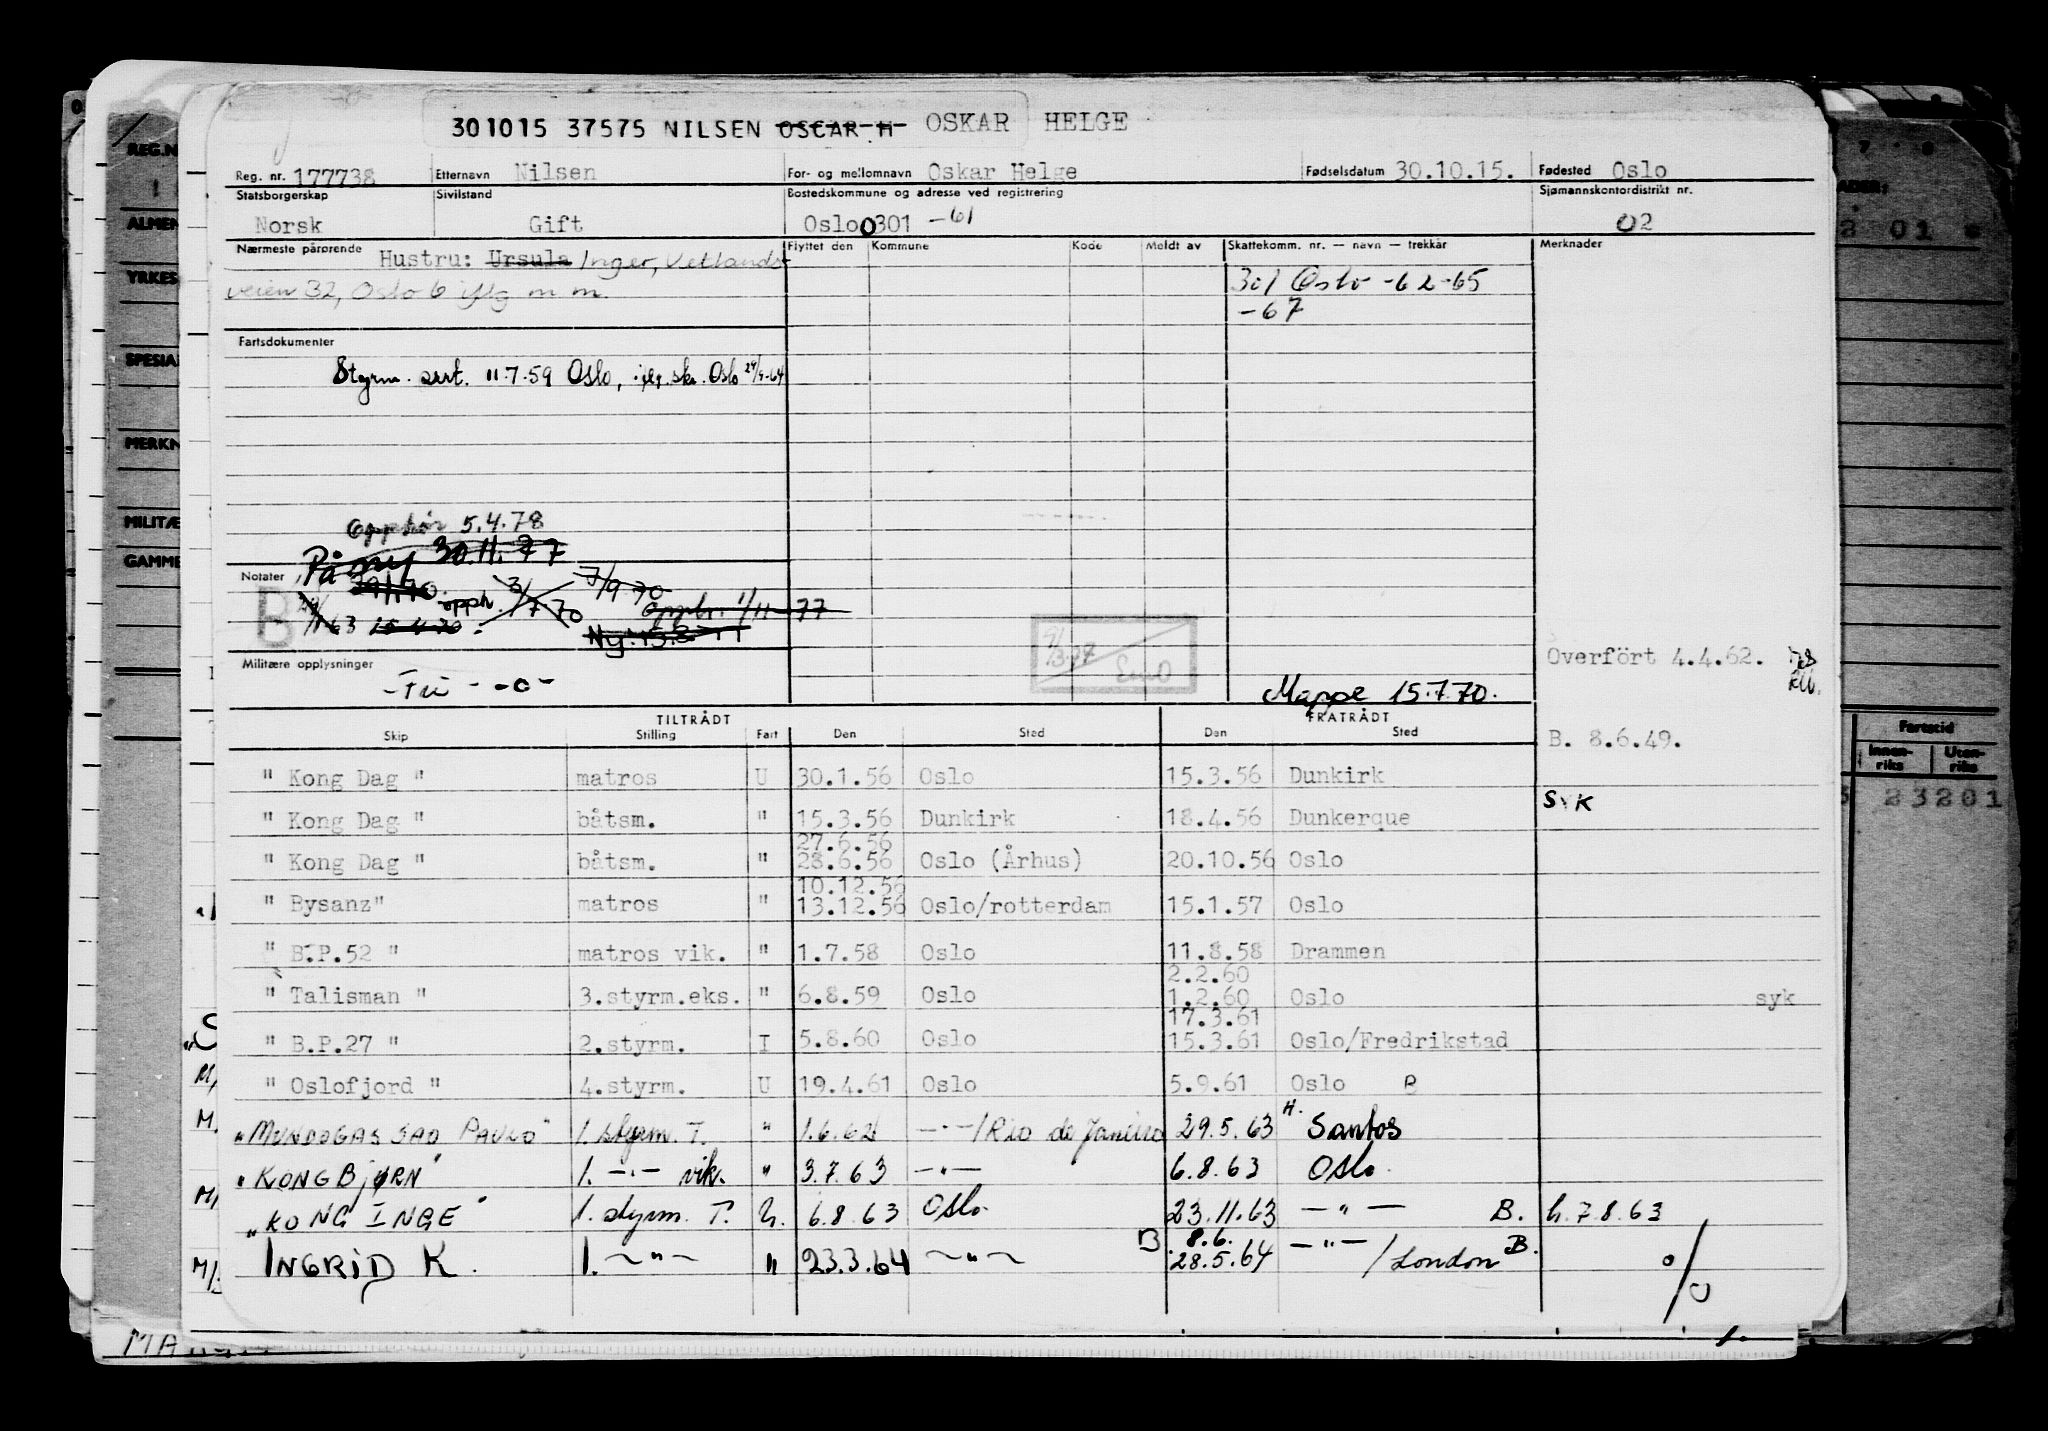 301015 37575 NILSEN OSCAR H OSKAR HELGE
Reg. nr. 177738 Etternavn Nilsen For- og mellomnavn Oskar Helge Fødselsdatum 30.10.15. Fødested Oslo
Statsborgerskap Sivilstand Bostedskommune og adresse ved registrering Sjømannskontordistrikt nr.
Norsk Gift Oslo 0301 -61 02
Nærmeste pårørende Hustru: Ursula Inger, Vetlands- Flyttet den Kommune Kode Meldt av Skattekomm. nr. — navn — trekkår Merknader
veien 32, Oslo 6 iflg m m.
301 Oslo -62-65
-67
Fartsdokumenter
Styrm. sert. 11.7.59 Oslo, iflg. sk. Oslo
Opphør 5.4.78
På ny 30.11.77
Notater 29/1 70 opph. 3/7-70 7/9 70
B 63 15.4.70 opphr. 1/11-77
Ny: 15.8
Overført 4.4.62.
Militære opplysninger
-Fri - -o-
Mappe 15.7.70.
TILTRÅDT FRATRÅDT
Skip Stilling Fart Den Sted Den Sted
B. 8.6.49.
" Kong Dag " matros U 30.1.56 Oslo 15.3.56 Dunkirk
SYK
" Kong Dag " båtsm. " 15.3.56 Dunkirk 18.4.56 Dunkerque
27.6.56
" Kong Dag " båtsm. " 28.6.56 Oslo (Århus) 20.10.56 Oslo
10.12.56
" Bysanz" matros " 13.12.56 Oslo/rotterdam 15.1.57 Oslo
" B.P.52 " matros vik. " 1.7.58 Oslo 11.8.58 Drammen
2.2.60
" Talisman " 3.styrm.eks. " 6.8.59 Oslo 1.2.60 Oslo syk
17.3.61
" B.P.27 " 2.styrm. I 5.8.60 Oslo 15.3.61 Oslo/Fredrikstad
" Oslofjord " 4.styrm. U 19.4.61 Oslo 5.9.61 Oslo B
"MUNDOGAS SAO PAULO" 1. styrm. T. " 1.6.62 —"—/Rio de Janeiro 29.5.63 H. Santos
"KONG BJØRN" 1. —"— vik. " 3.7.63 —"— 6.8.63 Oslo.
"KONG INGE" 1. styrm. T. U. 6.8.63 Oslo. 23.11.63 —"— B. h. 7.8.63
8.6.
INGRID K. 1. —"— " 23.3.64 —"— B 28.5.64 —"—/London B. o/
REG.N
ALMEN
YRKES
SPESIA
MERKN
MILITÆ
GAMME
Fartstid
Innen-
riks
Uten-
riks
23201
2 01